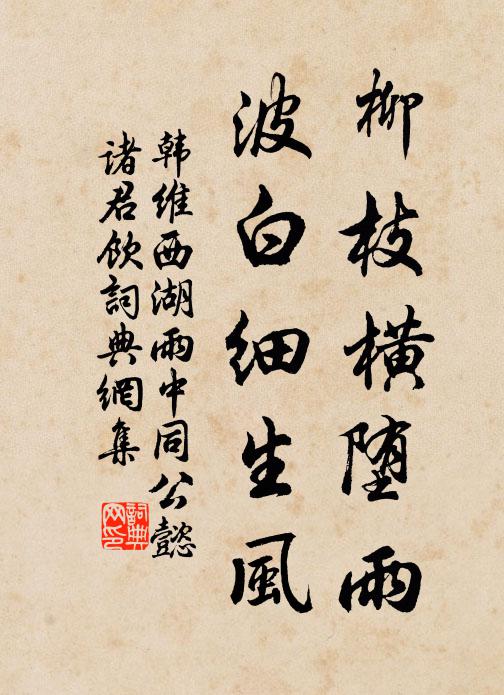 柳枝橫堕雨
波白细生風
韩維西湖雨中同公懿
诸君飲詞典網集
詞典
网印